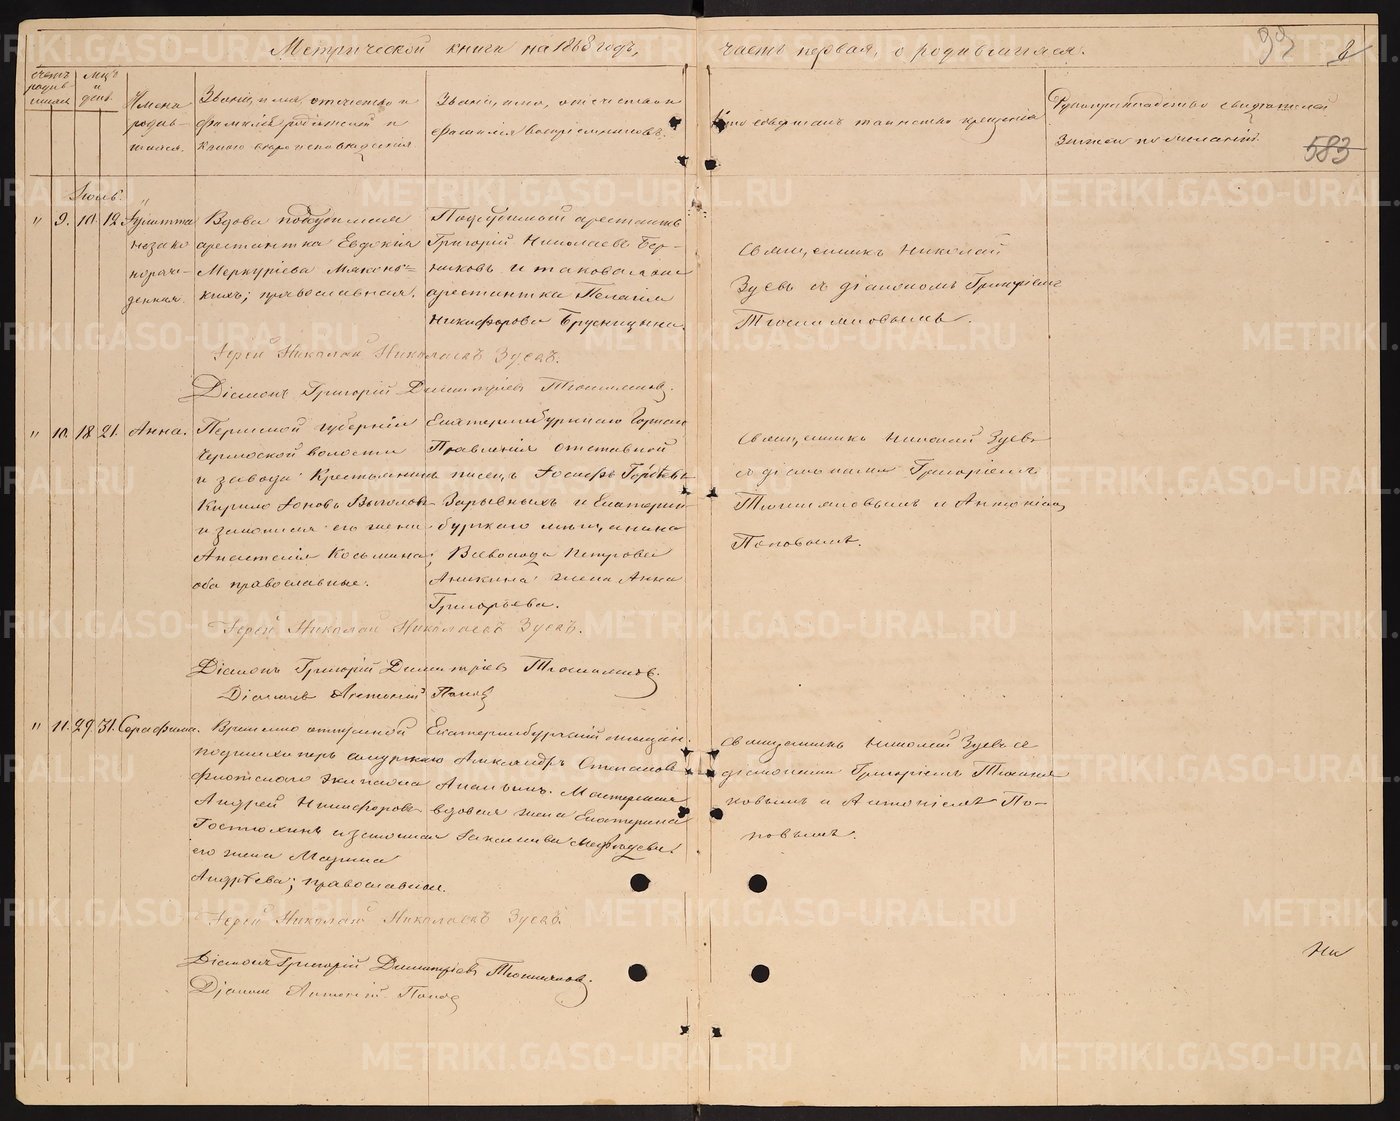 Метрической книги на 1868 годъ, часть первая, о родившихся.
99
583
счетъ родив-шихся
мцъ и день.
Имена родив-шихся.
Званіе, имя, отчество и фамилія родителей и какого вѣроисповѣданія
Званіе, имя, отчество и фамилія воспріемниковъ.
Кто совершалъ таинство крещенія
Рукоприкладство свидѣтелей записи по желанію.
Іюль.
" 9. 10. 12. Іулитта незаконорожденная.
Вдова подсудимая
арестантка Евдокія
Меркуріева
православная.
Подсудимой арестантъ
Григорій Николаевъ Бер-
никовъ и таковая же
арестантка Пелагія
Никифорова Брусницына.
Священникъ Николай
Зуевъ съ діакономъ Григоріемъ
Іерей Николай Николаевъ Зуевъ.
Діаконъ Григорій Димитріевъ
" 10. 18. 21. Анна.
Пермской губерніи
волости
и завода крестьянинъ
Кирило Іоновъ
и законная его жена
Анастасія Косьмина;
оба православные.
Екатеринбургскаго Горнаго
Правленія отставной
писецъ Іосифъ
Зарывныхъ и Екатерин-
бургскаго мѣщанина
Всеволода Петрова
Аникина жена Анна
Григорьева.
Священникъ Николай Зуевъ
съ діаконами Григоріемъ
и Антоніемъ
Поповымъ.
Іерей Николай Николаевъ Зуевъ.
Діаконъ Григорій Димитріевъ
Діаконъ Антоній Поповъ
" 11. 29. 31. Серафима.
Временно отпускной
флотскаго экипажа
Андрей Никифоровъ
и законная
его жена Марина
Андрѣева; православные.
Екатеринбургскій мѣщан.
Александръ Степановъ
Ананьинъ. Мастерская
вдовая жена Екатерина
Священникъ Николай Зуевъ съ
діаконами Григоріемъ
и Антоніемъ По-
повымъ.
Іерей Николай Николаевъ Зуевъ.
Діаконъ Григорій Димитріевъ
Діаконъ Антоній Поповъ
METRIKI.GASO-URAL.RU